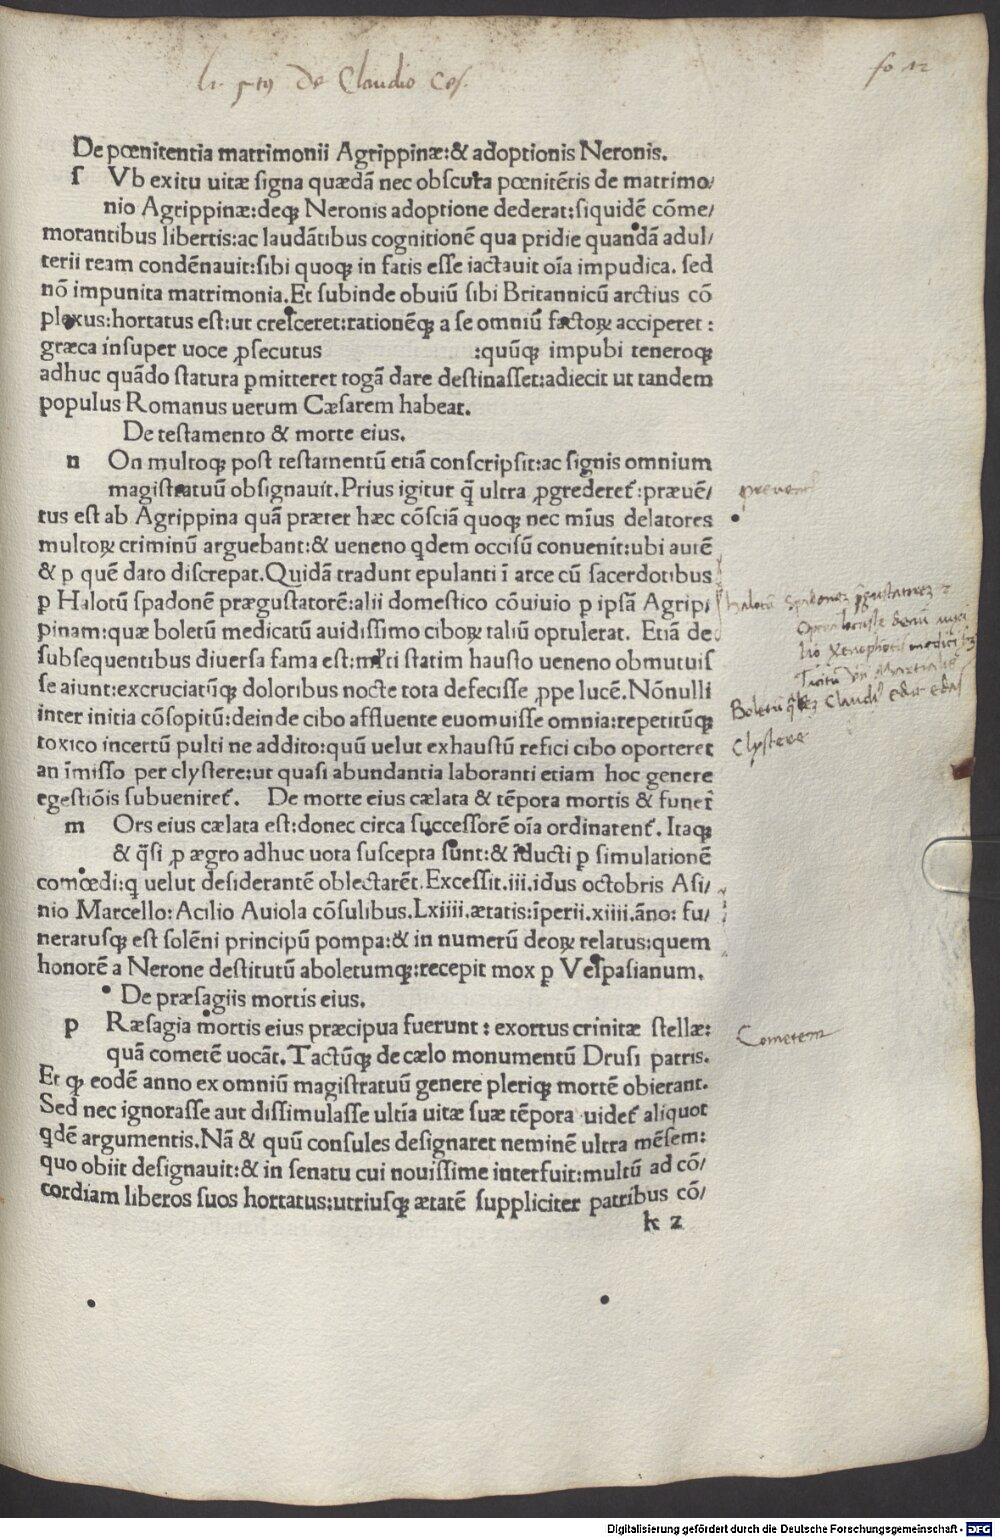 De Claudio Ces.
fo 12
De pœnitentia matrimonii Agrippinæ:& adoptionis Neronis.
ſ Vb exitu uitæ ſigna quædã nec obſcura pœnitẽtis de matrimo/
nio Agrippinæ:deqꝫ Neronis adoptione dederat:ſiquidẽ cõme/
morantibus libertis:ac laudãtibus cognitionẽ qua pridie quandã adul/
terii ream condẽnauit:ſibi quoqꝫ in fatis eſſe iactauit oĩa impudica. ſed
nõ impunita matrimonia.Et ſubinde obuiũ ſibi Britannicũ arctius cõ
plexus:hortatus eſt:ut creſceret:rationẽqꝫ a ſe omniũ factoꝝ acciperet :
græca inſuper uoce ꝓſecutus :quũqꝫ impubi teneroqꝫ
adhuc quãdo ſtatura ꝑmitteret togã dare deſtinaſſet:adiecit ut tandem
populus Romanus uerum Cæſarem habeat.
De teſtamento & morte eius.
n On multoqꝫ poſt teſtamentũ etiã conſcripſit:ac ſignis omnium
magiſtratuũ obſignauit.Prius igitur q̃ ultra ꝓgrederet᷑:præuẽ/
tus eſt ab Agrippina quã præter hæc cõſciã quoqꝫ nec mĩus delatores
multoꝝ criminũ arguebant:& ueneno qdem occiſũ conuenit:ubi autẽ
& ꝑ quẽ dato diſcrepat.Quidã tradunt epulanti ĩ arce cũ ſacerdotibus
ꝑ Halotũ ſpadonẽ præguſtatorẽ:alii domeſtico cõuiuio ꝑ ipſã Agrip/
pinam:quæ boletũ medicatũ auidiſſimo ciboꝝ taliũ optulerat. Etiã de
ſubſequentibus diuerſa fama eſt:mľti ſtatim hauſto ueneno obmutuiſ
ſe aiunt:excruciatũqꝫ doloribus nocte tota defeciſſe ꝓpe lucẽ.Nõnulli
inter initia cõſopitũ:deinde cibo affluente euomuiſſe omnia:repetitũqꝫ
toxico incertũ pulti ne addito:quũ uelut exhauſtũ refici cibo oporteret
an ĩmiſſo per clyſtere:ut quaſi abundantia laboranti etiam hoc genere
egeſtiõis ſubueniret᷑. De morte eius cælata & tẽpora mortis & funer̃
m Ors eius cælata eſt:donec circa ſucceſſorẽ oĩa ordinarent᷑. Itaqꝫ
& q̃ſi ꝓ ægro adhuc uota ſuſcepta ſunt:& ĩducti ꝑ ſimulationẽ
comœdi:q uelut deſiderantẽ oblectarẽt.Exceſſit.iii.idus octobris Aſi/
nio Marcello: Acilio Auiola cõſulibus.Lxiiii.ætatis:ĩperii.xiiii.ãno: fu/
neratuſqꝫ eſt ſolẽni principũ pompa:& in numerũ deoꝝ relatus:quem
honorẽ a Nerone deſtitutũ aboletumqꝫ:recepit mox ꝑ Veſpaſianum.
De præſagiis mortis eius.
p Ræſagia mortis eius præcipua fuerunt : exortus crinitæ ſtellæ:
quã cometẽ uocãt.Tactũqꝫ de cælo monumentũ Druſi patris.
Et qꝫ eodẽ anno ex omniũ magiſtratuũ genere pleriqꝫ mortẽ obierant.
Sed nec ignoraſſe aut diſſimulaſſe ultĩa uitæ ſuæ tẽpora uidet᷑ aliquot
qdẽ argumentis.Nã & quũ conſules deſignaret neminẽ ultra mẽſem:
quo obiit deſignauit:& in ſenatu cui nouiſſime interfuit:multũ ad cõ/
cordiam liberos ſuos hortatus:utriuſqꝫ ætatẽ ſuppliciter patribus cõ/
k 2
Clystere
Cometem
Digitalisierung gefördert durch die Deutsche Forschungsgemeinschaft - DFG